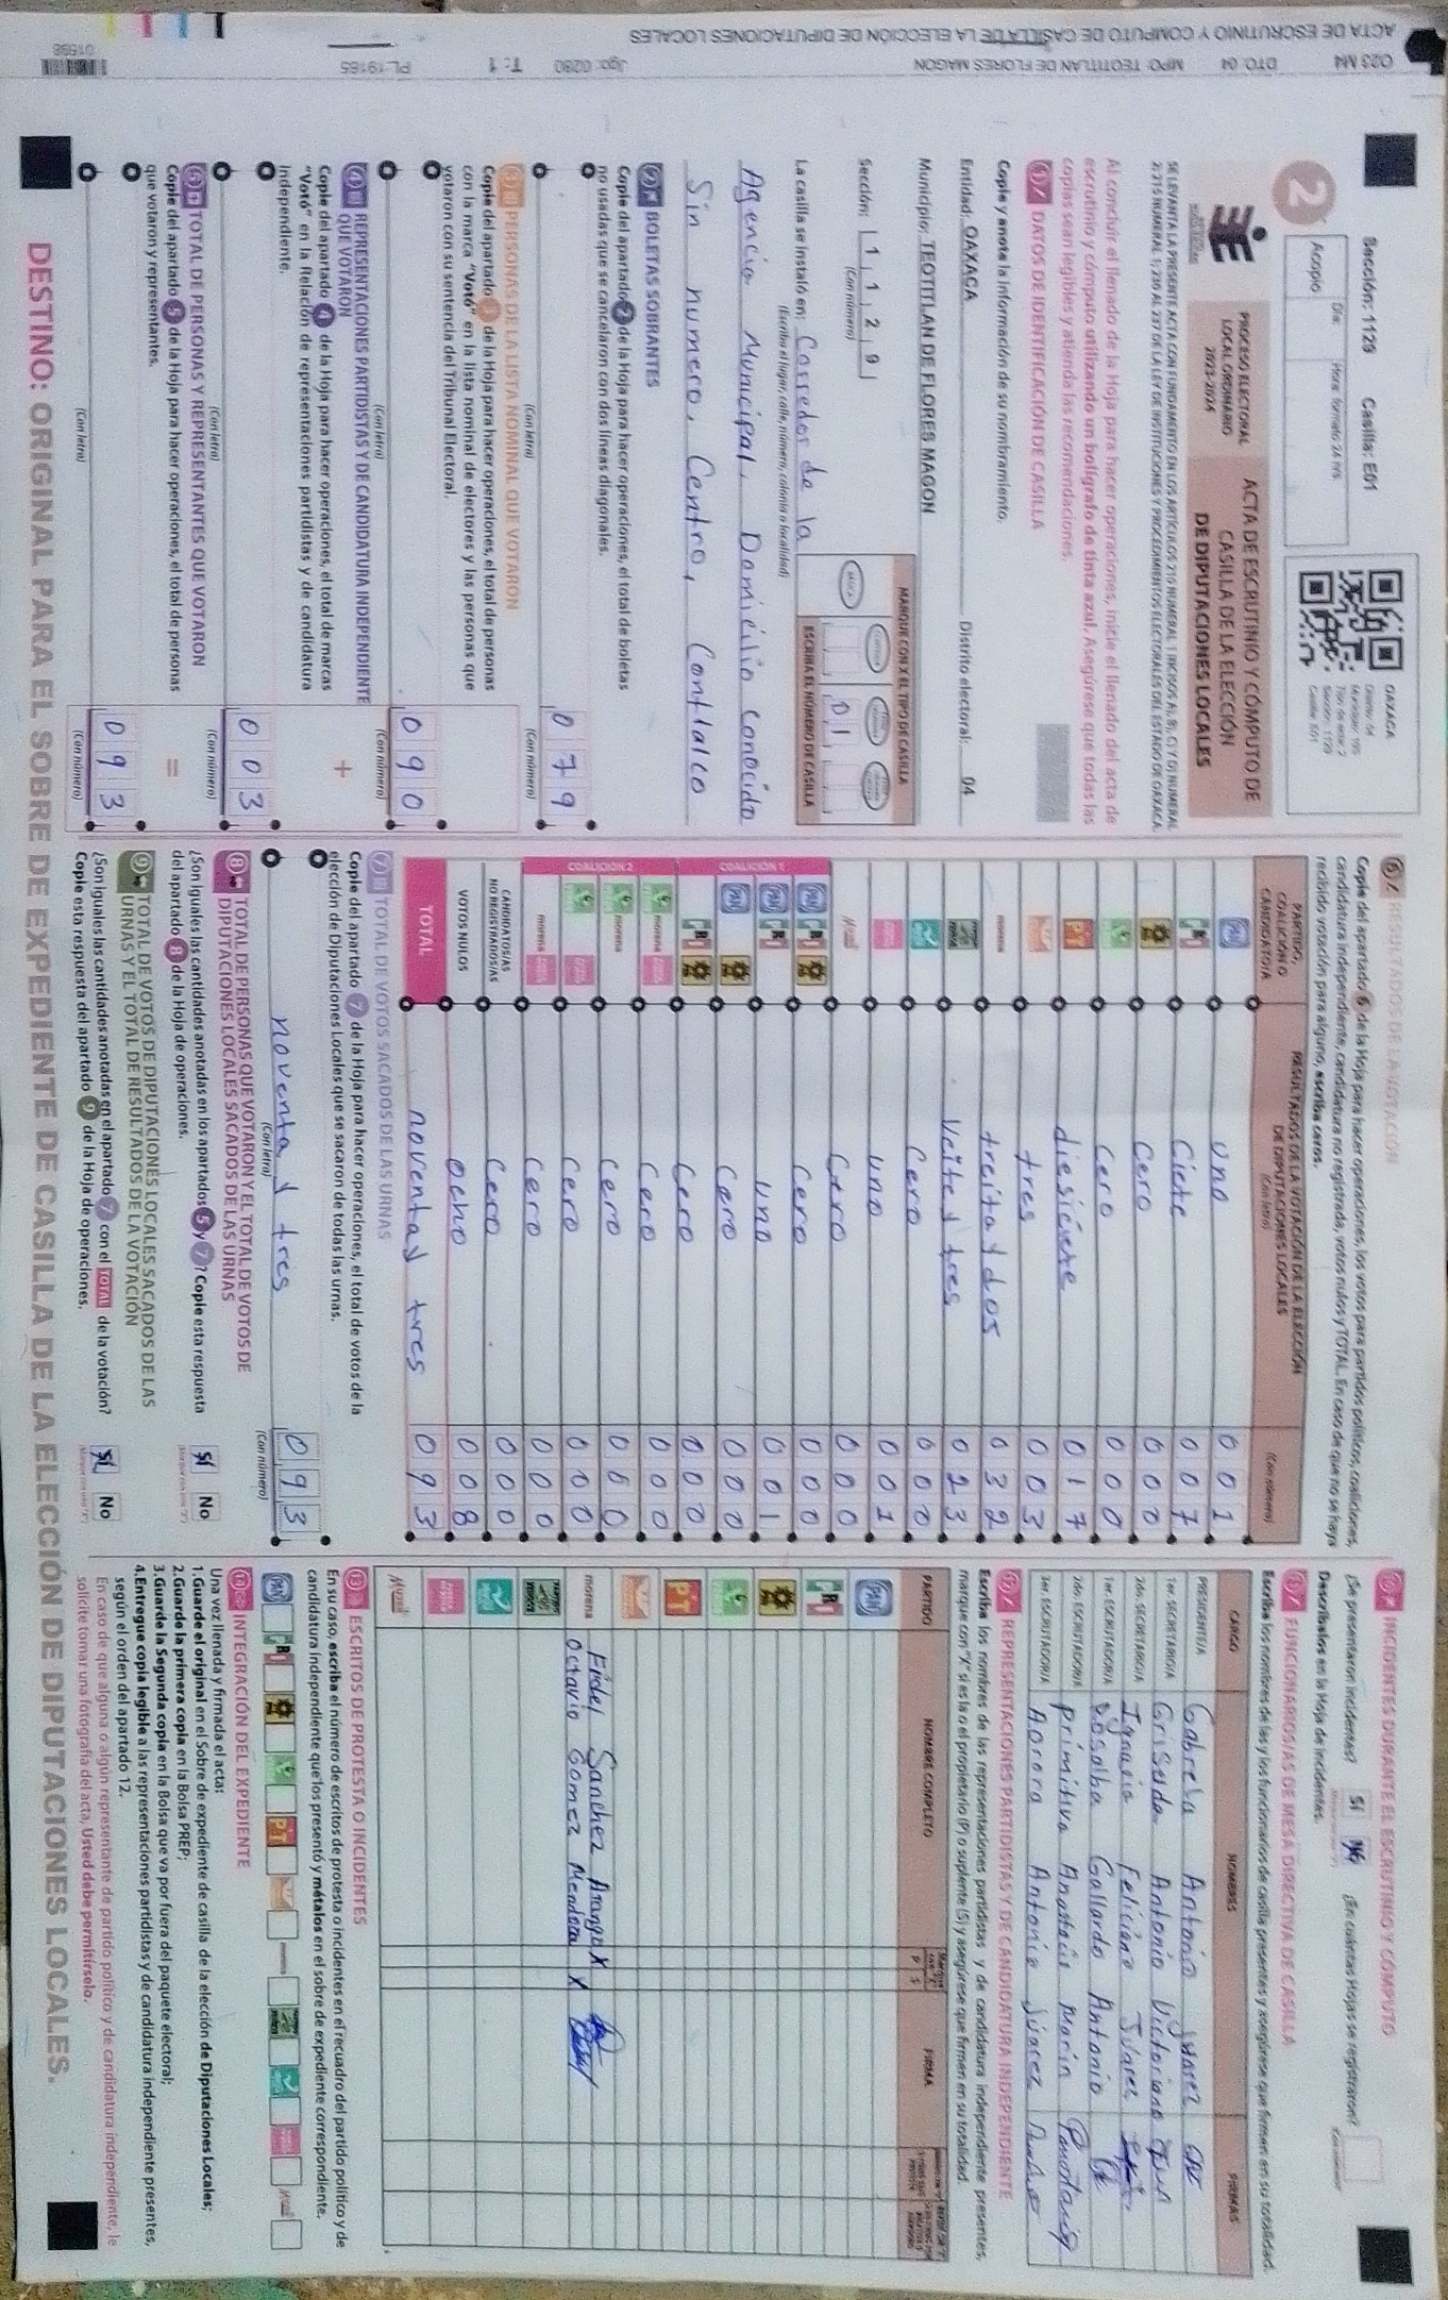 Sección: 1129 Casilla: E01
2
Acopio
Día:
Hora: formato 24 hrs
OAXACA
PROCESO ELECTORAL
LOCAL ORDINARIO
2023-2024
ACTA DE ESCRUTINIO Y CÓMPUTO DE
CASILLA DE LA ELECCIÓN
DE DIPUTACIONES LOCALES
Al concluir el llenado de la Hoja para hacer operaciones, inicie el llenado del acta de
escrutinio y cómputo utilizando un bolígrafo de tinta azul. Asegúrese que todas las
copias sean legibles y atienda las recomendaciones.
1 DATOS DE IDENTIFICACIÓN DE CASILLA
Copie y anote la información de su nombramiento.
Entidad: OAXACA Distrito electoral: 04
Municipio: TEOTITLAN DE FLORES MAGON
Sección: 1 1 2 9
(Con número)
MARQUE CON X EL TIPO DE CASILLA
01
ESCRIBA EL NÚMERO DE CASILLA
La casilla se instaló en: Corredos de la
(Escriba el lugar, calle, número, colonia o localidad)
Agencia Municipal, Domicilio conocido
Sin numero, Centro, Contlalco
2 BOLETAS SOBRANTES
Copie del apartado 2 de la Hoja para hacer operaciones, el total de boletas
no usadas que se cancelaron con dos líneas diagonales.
0 7 9
(Con letra) (Con número)
3 PERSONAS DE LA LISTA NOMINAL QUE VOTARON
Copie del apartado 3 de la Hoja para hacer operaciones, el total de personas
con la marca "Votó" en la lista nominal de electores y las personas que
votaron con su sentencia del Tribunal Electoral.
0 9 0
(Con letra) (Con número)
4 REPRESENTACIONES PARTIDISTAS Y DE CANDIDATURA INDEPENDIENTE
QUE VOTARON
Copie del apartado 4 de la Hoja para hacer operaciones, el total de marcas
"Votó" en la Relación de representaciones partidistas y de candidatura
independiente.
+
0 0 3
(Con letra) (Con número)
5 TOTAL DE PERSONAS Y REPRESENTANTES QUE VOTARON
Copie del apartado 5 de la Hoja para hacer operaciones, el total de personas
que votaron y representantes.
=
0 9 3
(Con letra) (Con número)
6 RESULTADOS DE LA VOTACIÓN
Copie del apartado 6 de la Hoja para hacer operaciones, los votos para partidos políticos, coaliciones,
candidatura independiente, candidatura no registrada, votos nulos y TOTAL. En caso de que no se haya
recibido votación para alguno, escriba ceros.
PARTIDO,
COALICIÓN O
CANDIDATO/A
RESULTADOS DE LA VOTACIÓN DE LA ELECCIÓN
DE DIPUTACIONES LOCALES
(Con letra)
(Con número)
PAN uno 0 0 1
PRI Ciete 0 0 7
Cero 0 0 0
Cero 0 0 0
PT diesiciete 0 1 7
tres 0 0 3
morena treita y dos 0 3 2
Veite y tres 0 2 3
Cero 0 0 0
uno 0 0 1
Cero 0 0 0
COALICIÓN 1
PAN PRI Cero 0 0 0
PAN PRI uno 0 0 1
PAN Cero 0 0 0
PRI Cero 0 0 0
COALICIÓN 2
morena Cero 0 0 0
morena Cero 0 0 0
Cero 0 0 0
morena Cero 0 0 0
CANDIDATOS/AS
NO REGISTRADOS/AS Cero 0 0 0
VOTOS NULOS ocho 0 0 8
TOTAL noventa y tres 0 9 3
7 TOTAL DE VOTOS SACADOS DE LAS URNAS
Copie del apartado 7 de la Hoja para hacer operaciones, el total de votos de la
elección de Diputaciones Locales que se sacaron de todas las urnas.
noventa y tres 0 9 3
(Con letra) (Con número)
8 TOTAL DE PERSONAS QUE VOTARON Y EL TOTAL DE VOTOS DE
DIPUTACIONES LOCALES SACADOS DE LAS URNAS
¿Son iguales las cantidades anotadas en los apartados 5 y 7? Copie esta respuesta
del apartado 8 de la Hoja de operaciones.
Sí No
9 TOTAL DE VOTOS DE DIPUTACIONES LOCALES SACADOS DE LAS
URNAS Y EL TOTAL DE RESULTADOS DE LA VOTACIÓN
¿Son iguales las cantidades anotadas en el apartado 7 con el TOTAL de la votación?
Copie esta respuesta del apartado 9 de la Hoja de operaciones.
Sí No
10 INCIDENTES DURANTE EL ESCRUTINIO Y CÓMPUTO
¿Se presentaron incidentes? Sí No ¿En cuántas Hojas se registraron?
Descríbalos en la Hoja de incidentes.
11 FUNCIONARIOS/AS DE MESA DIRECTIVA DE CASILLA
Escriba los nombres de las y los funcionarios de casilla presentes y asegúrese que firmen en su totalidad.
CARGO NOMBRES FIRMAS
PRESIDENTE/A Gabrela Antonio Juarez
1er. SECRETARIO/A Griselda Antonio Victoriano
2do. SECRETARIO/A Ignacio Feliciano Juarez
1er. ESCRUTADOR/A Rosalba Gallardo Antonio
2do. ESCRUTADOR/A primitivo Anastacio Morin
3er. ESCRUTADOR/A Aorora Antonio Juarez
12 REPRESENTACIONES PARTIDISTAS Y DE CANDIDATURA INDEPENDIENTE
Escriba los nombres de las representaciones partidistas y de candidatura independiente presentes,
marque con "X" si es la o el propietario (P) o suplente (S) y asegúrese que firmen en su totalidad.
PARTIDO NOMBRE COMPLETO P S FIRMA
PAN
PRI
PT
morena Fidel Sanchez Arango X
Octavio Gomez Mendoza X
13 ESCRITOS DE PROTESTA O INCIDENTES
En su caso, escriba el número de escritos de protesta o incidentes en el recuadro del partido político y de
candidatura independiente que los presentó y métalos en el sobre de expediente correspondiente.
PAN PRI PT
14 INTEGRACIÓN DEL EXPEDIENTE
Una vez llenada y firmada el acta:
1.Guarde el original en el Sobre de expediente de casilla de la elección de Diputaciones Locales;
2.Guarde la primera copia en la Bolsa PREP;
3.Guarde la Segunda copia en la Bolsa que va por fuera del paquete electoral;
4.Entregue copia legible a las representaciones partidistas y de candidatura independiente presentes,
según el orden del apartado 12.
En caso de que alguna o algún representante de partido político y de candidatura independiente, le
solicite tomar una fotografía del acta, Usted debe permitírselo.
DESTINO: ORIGINAL PARA EL SOBRE DE EXPEDIENTE DE CASILLA DE LA ELECCIÓN DE DIPUTACIONES LOCALES.
023 M4 DTO. 04 MPO. TEOTITLAN DE FLORES MAGON Jgo: 0280 T: 1 PL: 19165 01598
ACTA DE ESCRUTINIO Y COMPUTO DE CASILLA DE LA ELECCIÓN DE DIPUTACIONES LOCALES